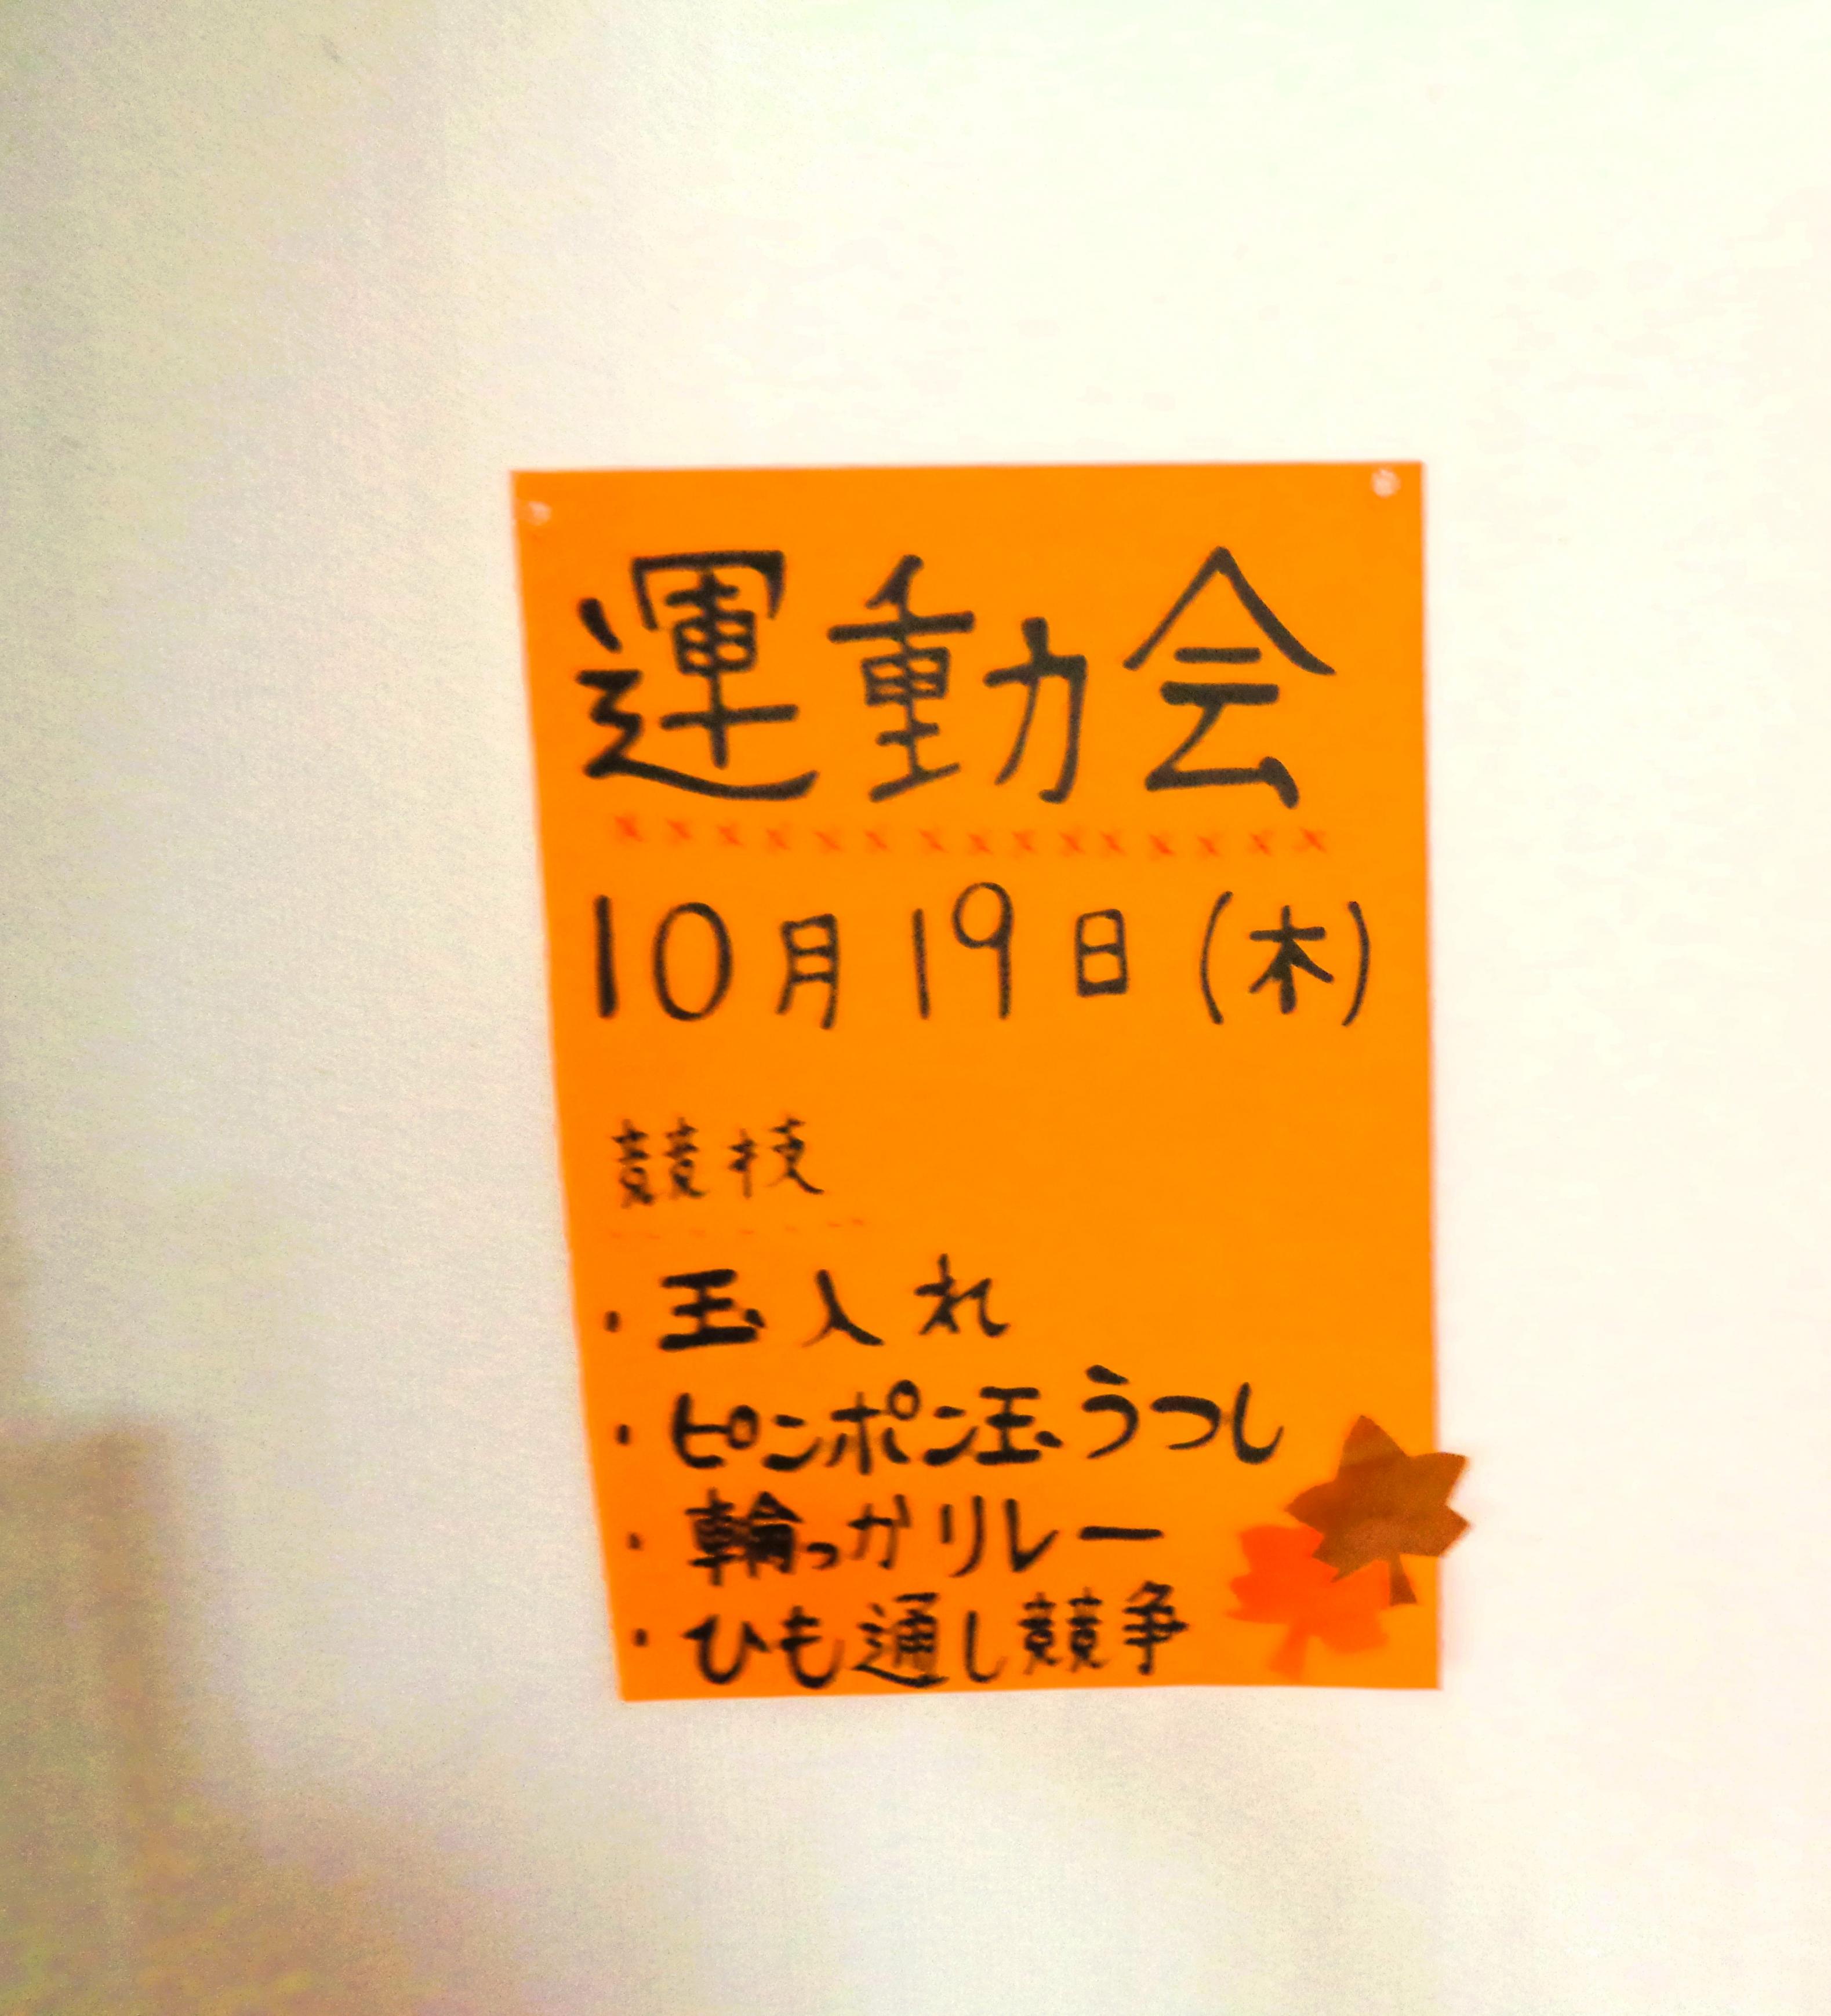 運動会
10月19日(木)
競技
・玉入れ
・ピンポン玉うつし
・輪っかリレー
・ひも通し競争